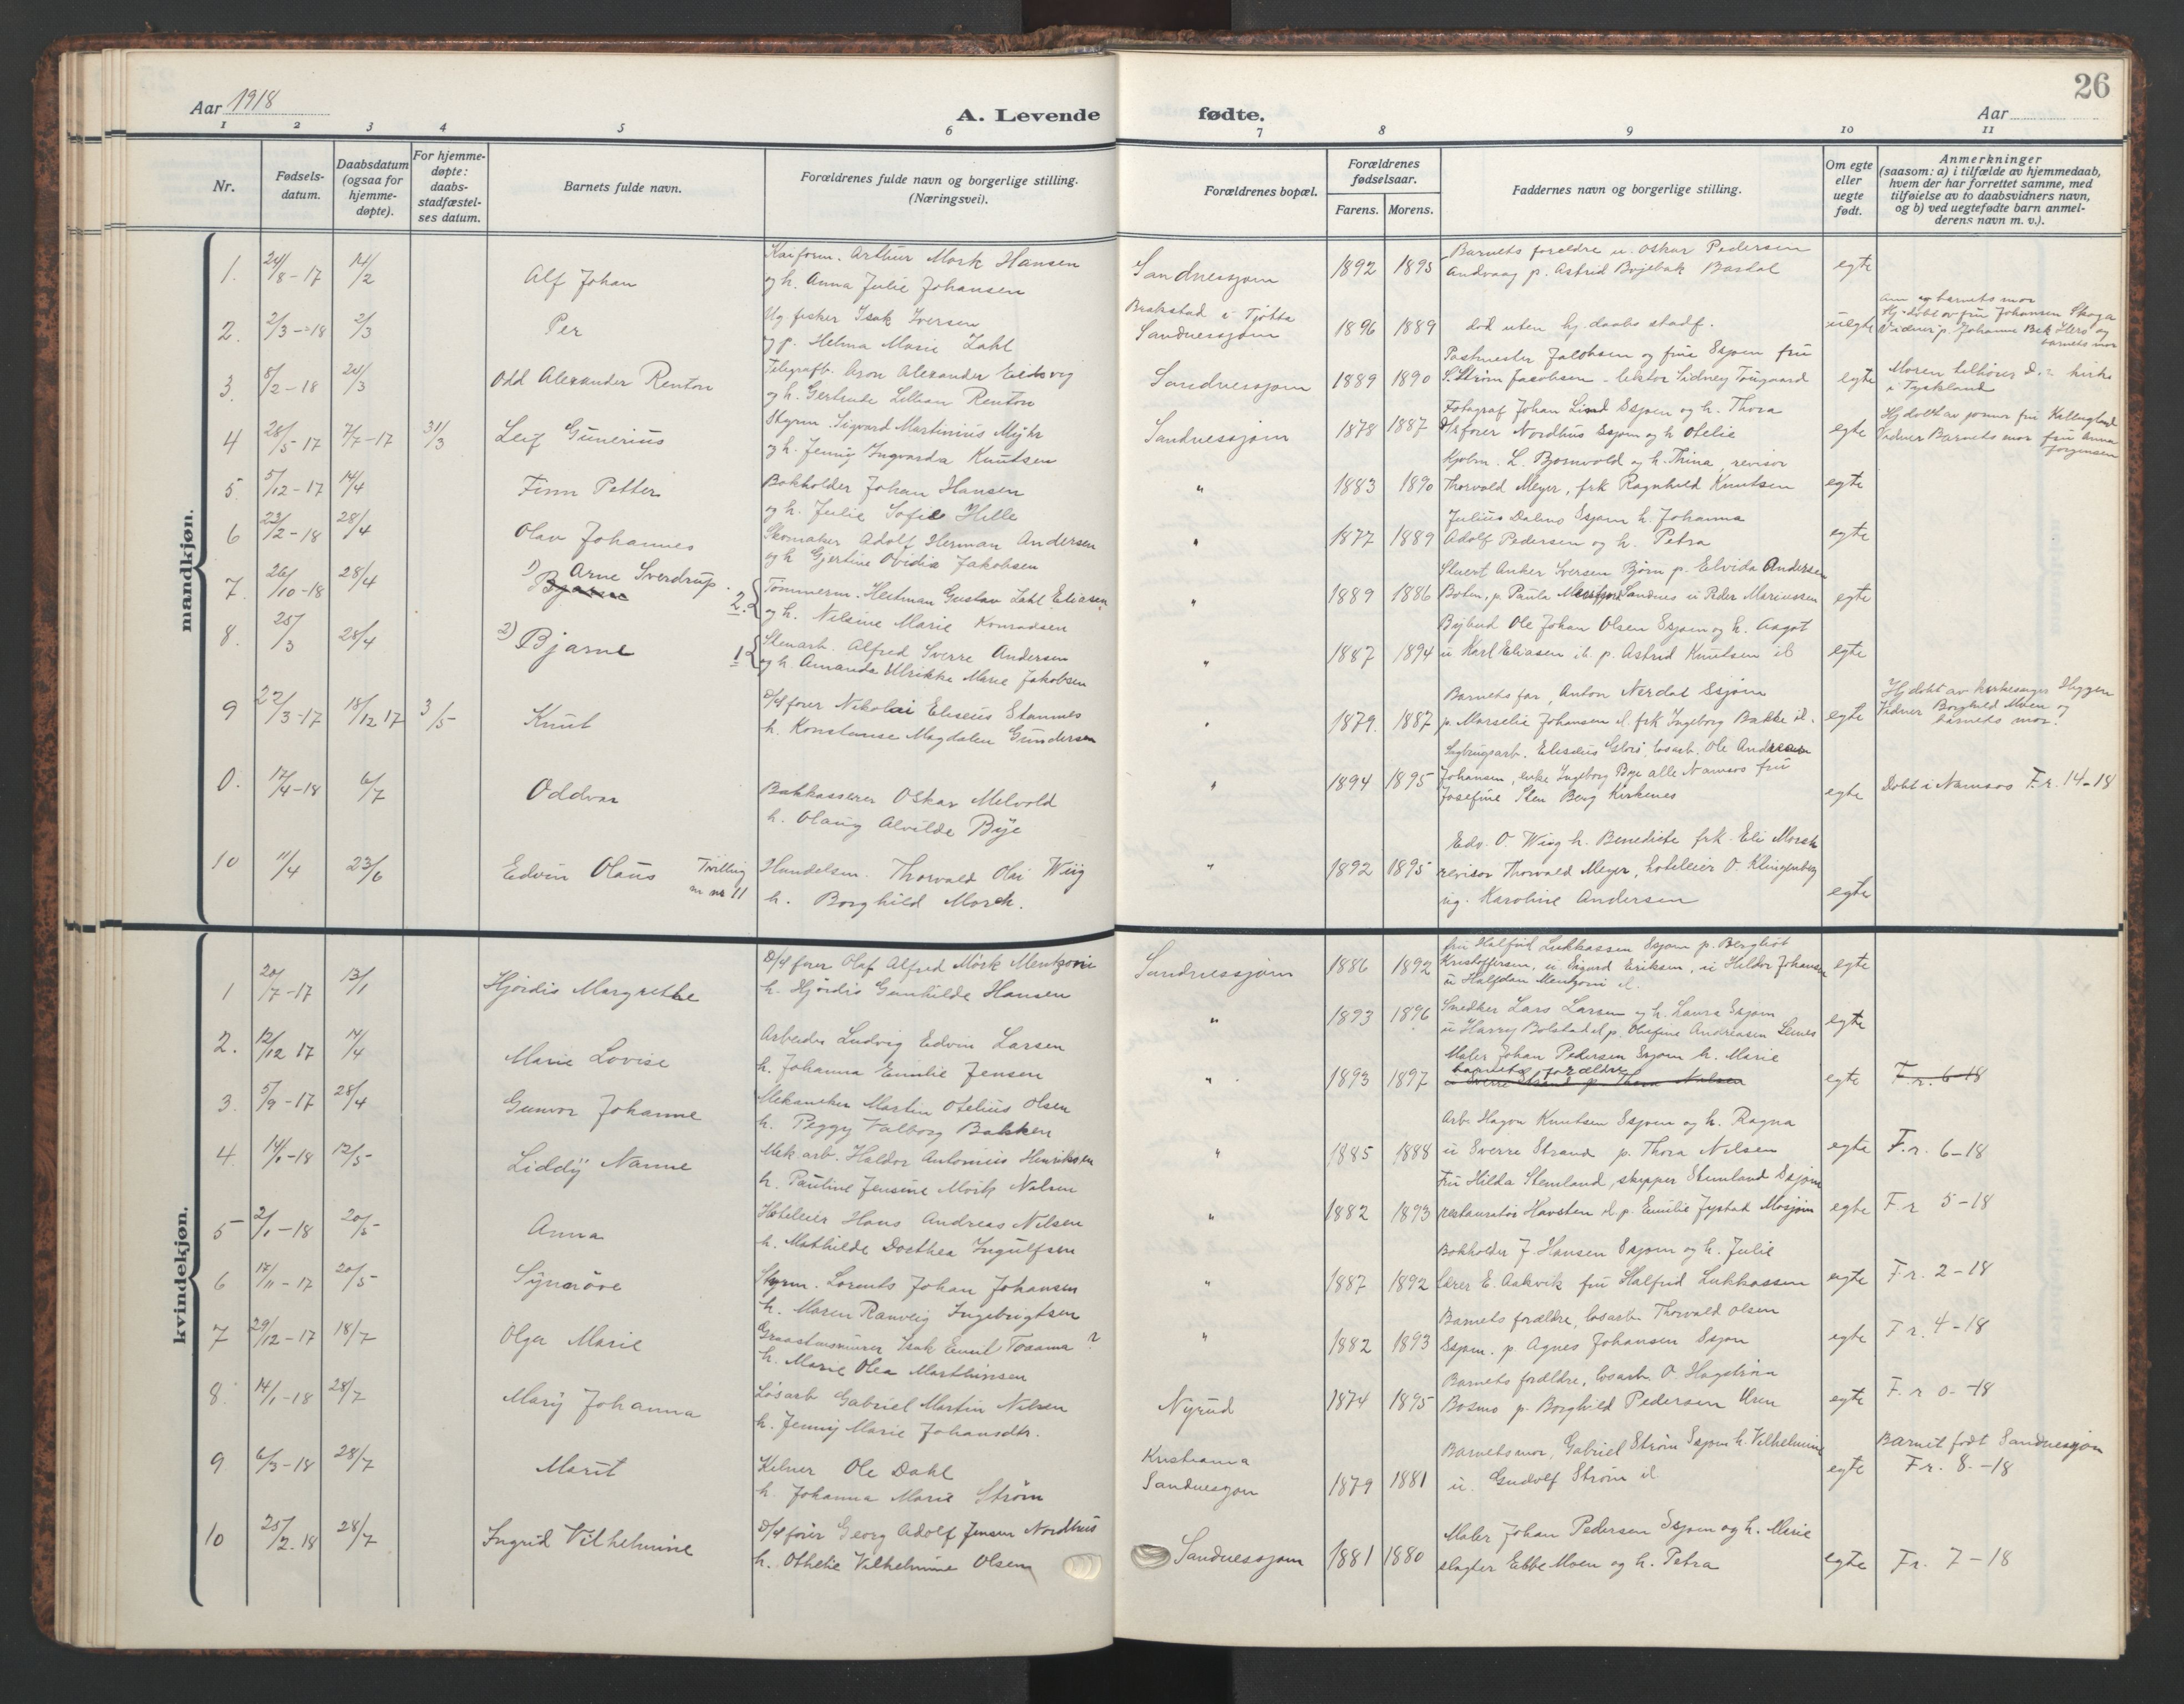 26
Aar 1918
A. Levende fødte.
Aar
1 2 3 4 5 6 7 8 9 10 11
Nr.
Fødsels-
datum.
Daabsdatum
(ogsaa for
hjemme-
døpte).
For hjemme-
døpte:
daabs-
stadfæstel-
ses datum.
Barnets fulde navn.
Forældrenes fulde navn og borgerlige stilling.
(Næringsvei).
Forældrenes bopæl.
Forældrenes
fødselsaar.
Farens. Morens.
Faddernes navn og borgerlige stilling.
Om egte
eller
uegte
født.
Anmerkninger
(saasom: a) i tilfælde av hjemmedaab,
hvem der har forrettet samme, med
tilføielse av to daabsvidners navn,
og b) ved uegtefødte barn anmel-
derens navn m. v.).
mandkjøn.
1. 24/8-17 14/2 Alf Johan
Arthur Mork Hansen
og h. Anna Julie Johansen
Sandnessjøen 1892 1895
Barnets foreldre u. Oskar Pedersen
Andvaag p. Astrid Bardal
egte
2. 2/3-18 2/3 Per
Ug fisker Isak Iversen
og p. Helma Marie Zahl
Brækstad i Tjøtta
Sandnessjøen 1896 1889
død uten hj. daabs stadf.
uegte
barnets mor
Hj. døbt av fru Johansen
Vidner p. Johanne og
barnets mor
3. 8/2-18 24/3 Odd Alexander Renton
Telegrafb. Aron Alexander Eidsvig
og h. Gertrude Lillian Renton
Sandnessjøen 1889 1890
Postmester Jacobsen og frue Ssjøen fru
S. Strøm Jacobsen - lektor Sidney
egte
Moren tilhører kirke
i Tyskland
4 28/5-17 7/7-17 31/3 Leif Gunerius
Styrm. Sigvard Martinius Myhr
og h. Jenny Ingvarda Knutsen
Sandnessjøen 1878 1887
Fotograf Johan Lind Ssjøen og h. Thora
D/Sfører Nordhus Ssjøen og h Otelie
egte
Hj døbt av fru
Vidner Barnets mor fru Anna
Jørgensen
5. 5/12-17 14/4 Finn Petter
Bokholder Johan Hansen
og h. Julie Sofie Hille
" 1883 1890
Kjøbm. L. Bjørnvold og h. Thina, revisor
Thorvald Meyer, frk Ragnhild Knutsen
egte
6 23/2-18 28/4 Olav Johannes
Skomaker Adolf Herman Andersen
og h Gjertine Ovidia Jakobsen
" 1877 1889
Julius Dalmo Ssjøen h. Johanna
Adolf Pedersen og h. Petra
egte
7. 26/10-18 28/4 1) Arne Sverdrup.
Bjarne
2. Tømmerm. Heitman Gustav Zahl Eliasen
og h. Nilsine Marie Konradsen
" 1889 1886
Stuert Anker Iversen Bjørn p. Elvida Andersen
Botn, p. Paula Sandnes u Peder Mariussen
egte
8. 25/3 28/4 2) Bjarne
1 Stenarb. Alfred Sverre Andersen
og h. Amanda Ulrikke Marie Jakobsen
" 1887 1894
Bybud Ole Johan Olsen Ssjøen og h. Aagot
u Karl Eliasen ib. p. Astrid Knutsen ib
egte
9 22/3-17 18/12 17 3/5 Knut
D/S fører Nikolai Eliseus Stamnes
h. Konstanse Magdalen Gundersen
" 1879. 1887
Barnets far, Anton Nerdal Ssjøen
p. Marselie Johansen d. frk Ingeborg Bakke d.
egte
Hj døbt av kirkesanger Heggen
Vidner Borghild Moen og
barnets mor.
0. 17/4-18 6/7 Oddvar
Bankkasserer Oskar Melvold
h. Olaug Alvilde Bye
" 1894 1895
Sagbrugsarb. Eliseus løsarb. Ole Andreas
Johansen, enke Ingeborg Bye alle Namsos fru
Josefine Sten Berg Kirkenes
egte
Døbt i Namsos F.r. 14-18
10 11/4 23/6 Edvin Olaus Tvilling
m nr 11
Handelsm. Thorvald Olai Wiig
h. Borghild Morch.
" 1892 1895
Edv. O. Wiig h. Benedicte frk Eli Morch
revisor Thorvald Meyer, hoteleier O. Klingenberg
ug. Karoline Andersen
egte
kvindekjøn.
1 20/7-17 13/1 Hjørdis Margrethe
D/S fører Olaf Alfred Mörk Mentzoni
h. Hjördis Gunhilde Hansen
Sandnessjøen 1886 1892
fru Halfrid Lukkassen Ssjøen p. Bergliot
Kristoffersen, u Sigurd Eriksen, u Hildor Johansen
u Halfdan Mentzoni d.
egte
2. 12/12 17 14/4 Marie Lovise
Arbeider Ludvig Edvin Larsen
h. Johanna Emilie Jensen
" 1893 1896
Snedker Lars Larsen og h. Laura Ssjøen
u Harry Bolstad d p. Olufine Andreasen
egte
3. 5/9-17 28/4 Gunvor Johanne
Mekaniker Martin Otelius Olsen
h. Peggy Valborg Bakken
" 1893 1897
Maler Johan Pedersen Ssjøen h. Marie
barnets forældre
u Sverre Strand p. Thora Nilsen
egte F.r. 6-18
4. 14/1-18 12/5 Liddy Nanne
Mek. arb. Haldor Antonius Henriksen
h. Pauline Jensine Mörk Nilsen
" 1885 1888
Arb. Hagon Knutsen Ssjøen og h. Ragna
u Sverre Strand p. Thora Nilsen
egte F.r. 6-18
5 2/1-18 20/5 Anna
Hoteleier Hans Andreas Nilsen
h. Mathilde Dorthea Ingulfsen
" 1882 1893
Fru Hilda Stemland, skipper Stemland Ssjøen
restauratør Havsten d p. Emilie Jystad Mosjøen
egte F.r 5-18
6 17/11-17 20/5 Synnöve
Styrm. Lorents Johan Johansen
h. Maren Ranveig Ingebrigtsen
" 1887 1892
Bokholder J. Hansen Ssjøen og h. Julie
Lærer E. Aakvik fru Halfrid Lukkassen
egte F.r. 2-18
7 29/12-17 18/7 Olga Marie
Isak Emil Toaama ?
h. Marie Olea Marthinsen
" 1882 1893
Barnets forældre, løsarb. Thorvald Olsen
Ssjøen. p. Agnes Johansen Ssjøen
egte F.r. 4-18
8. 14/1-18 28/7 Mary Johanna
Løsarb Gabriel Martin Nilsen
h. Jenny Marie Johansdtr.
Nyrud 1874 1895
Barnets forældre, løsarb. O. Hagström
Bosmo p. Borghild Pedersen Uren
egte F.r 0-18
9 6/3-18 28/7 Marit
Kelner Ole Dahl
h. Johanna Marie Strøm
Kristiania
Sandnessjøen 1879 1881
Barnets mor, Gabriel Strøm Ssjøen h. Vilhelmine
u. Gudolf Strøm d.
egte
Barnet født Sandnessjøen
F.r. 8.-18
10 25/2-18 28/7 Ingrid Vilhelmine
D/S fører Georg Adolf Jensen Nordhus
h. Othelie Vilhelmine Olsen
Sandnessjøen 1881 1880
Maler Johan Pedersen Ssjøen og h. Marie
slagter Ebbe Moen og h. Petra
egte F.r. 7-18